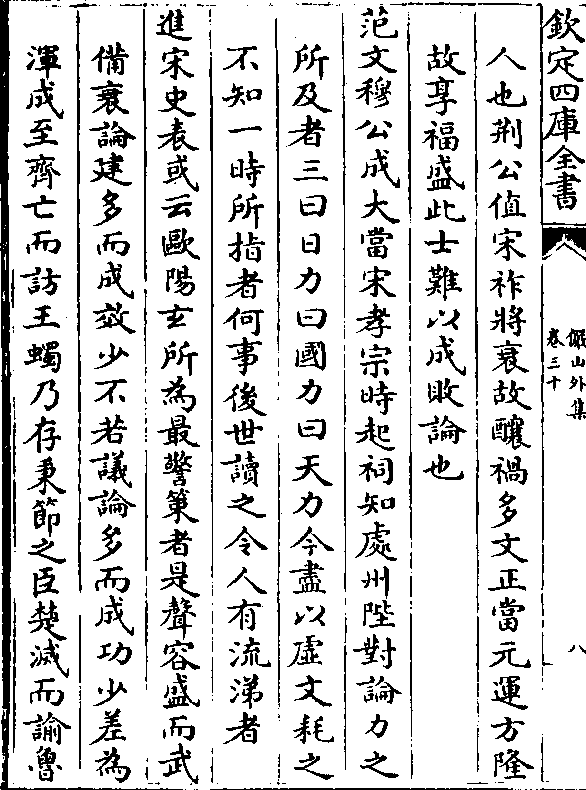 欽定四庫全書
儼山外集
卷三十
八
人也荆公值宋祚將衰故釀禍多文正當元運方隆
故享福盛此士難以成敗論也
范文穆公成大當宋孝宗時起祠知處州陛對論力之
所及者三曰日力曰國力曰天力今盡以虚文耗之
不知一時所指者何事後世讀之令人有流涕者
進宋史表或云歐陽玄所為最警䇿者是聲容盛而武
備衰論建多而成效少不若議論多而成功少差為
渾成至齊亡而訪王蠋乃存秉節之臣楚滅而諭魯